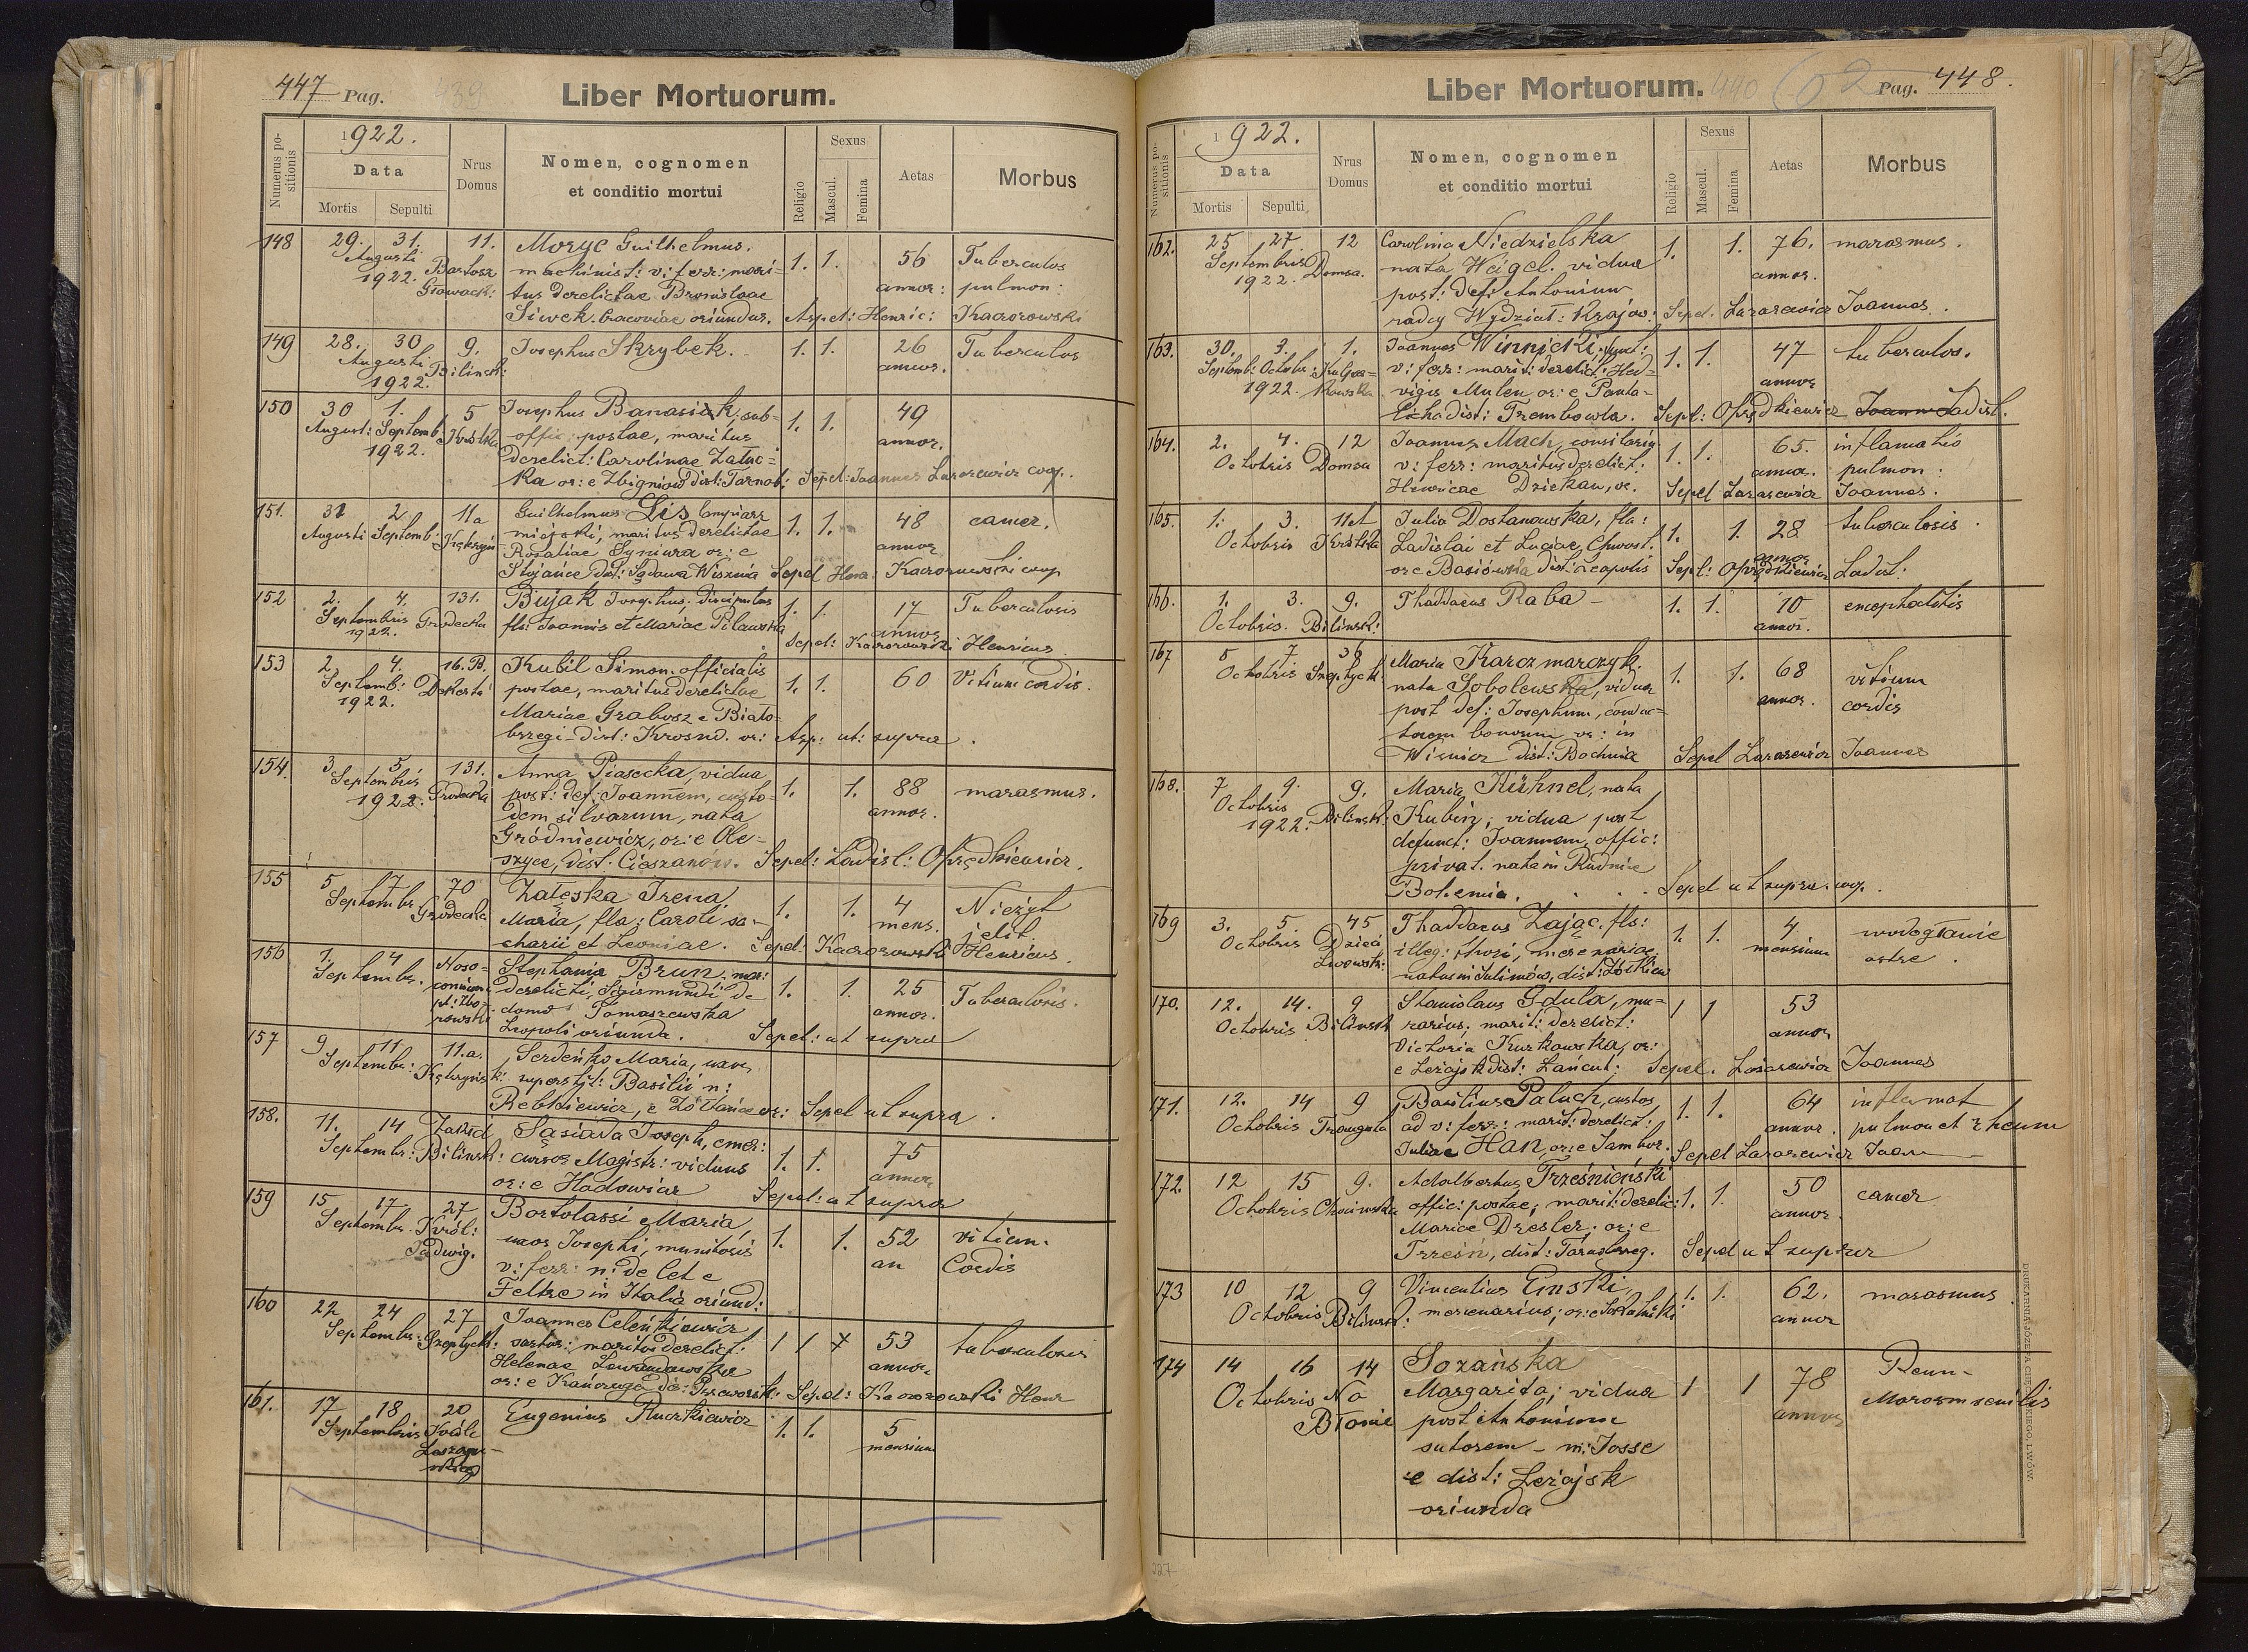 447 Pag. 439
Liber Mortuorum.
Numerus positionis
1922.
Data
Mortis Sepulti
Nrus Domus
Nomen, cognomen
et conditio mortui
Religio
Sexus
Mascul.
Femina
Aetas
Morbus
148 29. 31. 11. Guilhelmus. 1. 1. 56 Tuberculos
Augusti Bartosz machinist: v: ferr: mari- annor: pulmon:
1922. Głowack: tus derelictae Bronislaae
Siwek. Cracoviae oriundus. Henric: Kaczorowski
149 28. 30 9. Josephus Skrybek. 1. 1. 26 Tuberculos
Augusti Bilinsk: annor.
1922.
150 30 1. 5 Josephus Banasiak, sub- 1. 1. 49
August: Septemb. Królska offic: postae, maritus annor.
1922. derelict: Carolinae Załuc-
ka or: e Zbigniów dist: Tarnob: Sepel: Joannes Lazarewicz coop.
151. 31 2 11a Guilhelmus Lis 1. 1. 48 cancer.
Augusti Septemb. miejski, maritus derelictae annor
Rosaliae Syniura or: e
Stojańce dist: Sądowa Wisznia Sepel Kaczorowski coop
152 2. 4. 131. Bujak Josephus, discipulus 1. 1. 17 Tuberculosis
Septembris Grodecka fls: Joannis et Mariae Pilawska annor
1922. Sepel: Kaczorowski Henricus
153 2. 4. 16. B. Kubil Simon. officialis 1. 1. 60 Vitium cordis.
Septemb: Dekerta postae, maritus derelictae
1922. Mariae Grabosz e Biało-
brzegi dist: Krosno. or: Asp: ut: supra.
154. 3 5. 131. Anna Piasecka, vidua 1. 1. 88 marasmus.
Septembris Grodecka post: def: Joannem, custo- annor.
1922. dem silvarum, nata
Gródniewicz, or: e Ole-
szyce, dist. Cieszanów. Sepel: Ladisl: Oprędkiewicz.
155 5 7 70 Załęska Irena, 1. 1. 4 Nieżyt
Septembr Grodecka Maria, fla: Caroli mens. jelit.
et Leoniae. Sepel: Kaczorowski Henricus.
156 1. 4 Noso- Stephania Brun. 1. 1. 25 Tuberculosis.
Septembr. comium derelicti, Sigismundi de annor.
domo Tomaszewska
Leopoli oriunda. Sepel: ut supra
157 9 11 11.a. Serdeńko Maria,
Septembr: superstit: Basilii n:
Rebkiewicz, e or: Sepel ut supra.
158. 11. 14 Zakład Sąsiada Joseph, emer: 1. 1. 75
Septembr: Bilinsk: cursor Magistr: viduus annor
or: e Hadowiar Sepel: ut supra
159 15 17 27 Bortolassi Maria, 1. 1. 52 vitium.
Septembr. Król: uxor Josephi, munitoris an Cordis
Jadwig. v: ferr: n:
Feltre in Italia oriund:
160 22 24 27 Joannes Celeńkiewicz 1 1 53 tuberculosis
Septembr: Szeptyck: sartor: maritus derelict: annor.
Helenae Lewandowska
or: e Kańczuga dis: Przeworsk: Sepel: Kaczorowski Henr
161. 17 18 20 Eugenius Ruczkiewicz 1. 1. 5
Septembris Król: mensium
Liber Mortuorum. 440 62 Pag. 448.
Numerus positionis
1922.
Data
Mortis Sepulti
Nrus Domus
Nomen, cognomen
et conditio mortui
Religio
Sexus
Mascul.
Femina
Aetas
Morbus
162. 25 27 12 Carolina Niedzielska 1. 1. 76. marasmus.
Septembris Domsa. nata Weigel. vidua annor.
1922. post: def: Antonium
radcy Wydział: Krajow: Sepel. Lazarewicz Joannes.
163. 30. 3. 1. Joannes Winnicki, 1. 1. 47 tuberculos.
Septemb: Octobr: v: ferr: marit: derelict: Hed- annor
1922. vigis Mulen or: e Panta-
licha dist: Trembowla. Sepel: Oprędkiewicz Ladisl.
164. 2. 4. 12 Joannes Mach, consiliari 1. 1. 65. inflamatio
Octobris Domsa v: ferr: maritus derelict: annor. pulmon:
Henricae or. Sepel Lazarewicz Joannes.
165. 1. 3. 11 Julia Dostanowska, fla: 1. 1. 28 tuberculosis.
Octobris Królska Ladislai et Luciae Chwost. annor
or: e Basiówka dist: Leopolis Sepel: Oprędkiewicz Ladisl:
166. 1. 3. 9. Thaddaeus Raba - 1. 1. 10 encephalitis
Octobris. Bilinsk: annor.
167 5 7 36 Maria Karczmarczyk. 1. 1. 68 vitium
Octobris Szeptyck. nata Sobolewska, vidua annor. cordis
post def: Josephum, conduc-
torem bonorum or: in
Wisnicz dist: Bochnia Sepel Lazarewicz Joannes
168. 7 9. 9. Maria Kühnel, nata
Octobris Bilinsk: Kubin, vidua post
1922. defunct: Joannem, offic:
privat. nata in Rudnic
Bohemia. Sepel ut supra. coop.
169 3. 5 45 Thaddaeus Zając. fls: 1. 1. 4 wodogłowie
Octobris Dzieci illeg: thori, mercenariae mensium ostre.
Lwowsk: natus in Sulimów, dist: Żółkiew
170. 12. 14. 9 Stanislaus Gdula, mu- 1 1 53
Octobris Bilinsk rarius, marit: derelict: annor
Victoria Kurkowska, or:
e Leżajsk dist: Łańcut: Sepel. Lazarewicz Joannes
171. 12. 14 9 Basilius Paluch, custos 1. 1. 64 inflamat
Octobris Traugutta ad v: ferr: marit: derelict: annor. pulmon et rheum
Juliae Han, or: e Sambor. Sepel Lazarewicz Joan
172. 12 15 9. Adalbertus Trześniciński 1. 1. 50 cancer
Octobris offic: postae, marit: derelic: annor.
Mariae Dresler. or: e
Trześń, dist: Tarnobrzeg. Sepel ut supra
173 10 12 9 Vincentius Enski, 1. 1. 62. marasmus
Octobris Bilinsk: mercenarius, or: e annor
174 14 16 14 Sozańska 1 1 78
Octobris Na Margarita, vidua annor Marasm senilis
Błonie post Antonium
sutorem - n: Josse
e dist: Leżajsk
oriunda
DRUKARNIA JÓZEFA CHĘCIŃSKIEGO, LWÓW.
227